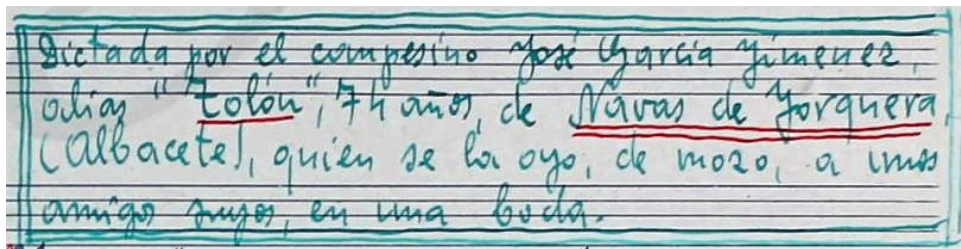 Dictada por el campesino José García Jimenez,
alias "Zolón", 74 años, de Navas de Jorquera
(Albacete), quien se la oyo, de mozo, a unos
amigos suyos, en una boda.